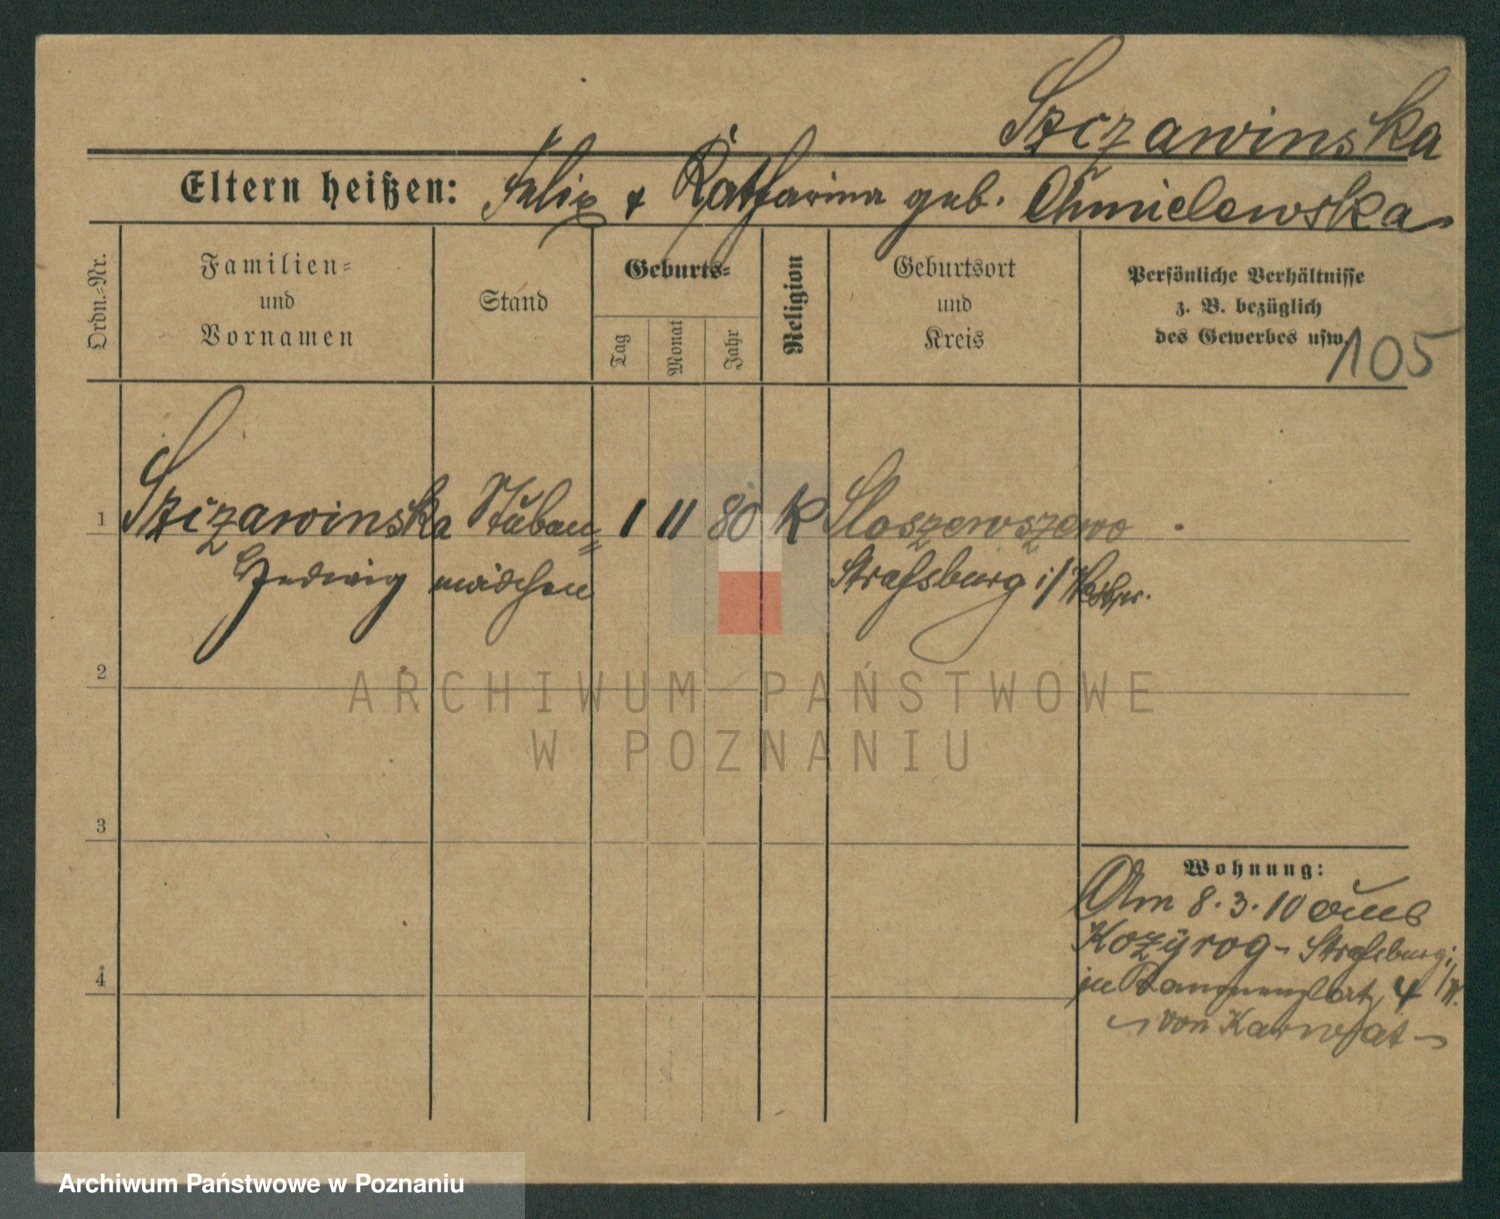 Szczawinska
Eltern heißen: Felix & Katharina geb. Chmielewska
Ordn.-Nr.
Familien-
und
Vornamen
Stand
Geburts-
Tag
Monat
Jahr
Religion
Geburtsort
und
Kreis
Persönliche Verhältnisse
z. B. bezüglich
des Gewerbes usw.
105
1 Szczawinska Stuben= 1 11 80 K Sloszewszewo
Hedwig mädchen Strasburg i/Westpr.
2
ARCHIWUM PAŃSTWOWE
W POZNANIU
3
Wohnung:
Am 8.3.10 aus
Kozyrog - Strasburg i/W.
4
zu 4
von
Archiwum Państwowe w Poznaniu